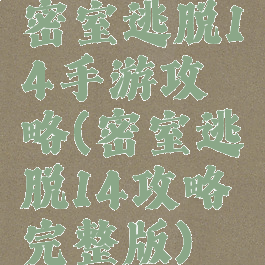 密室逃脱1
4手游攻
略(密室逃
脱14攻略
完整版)